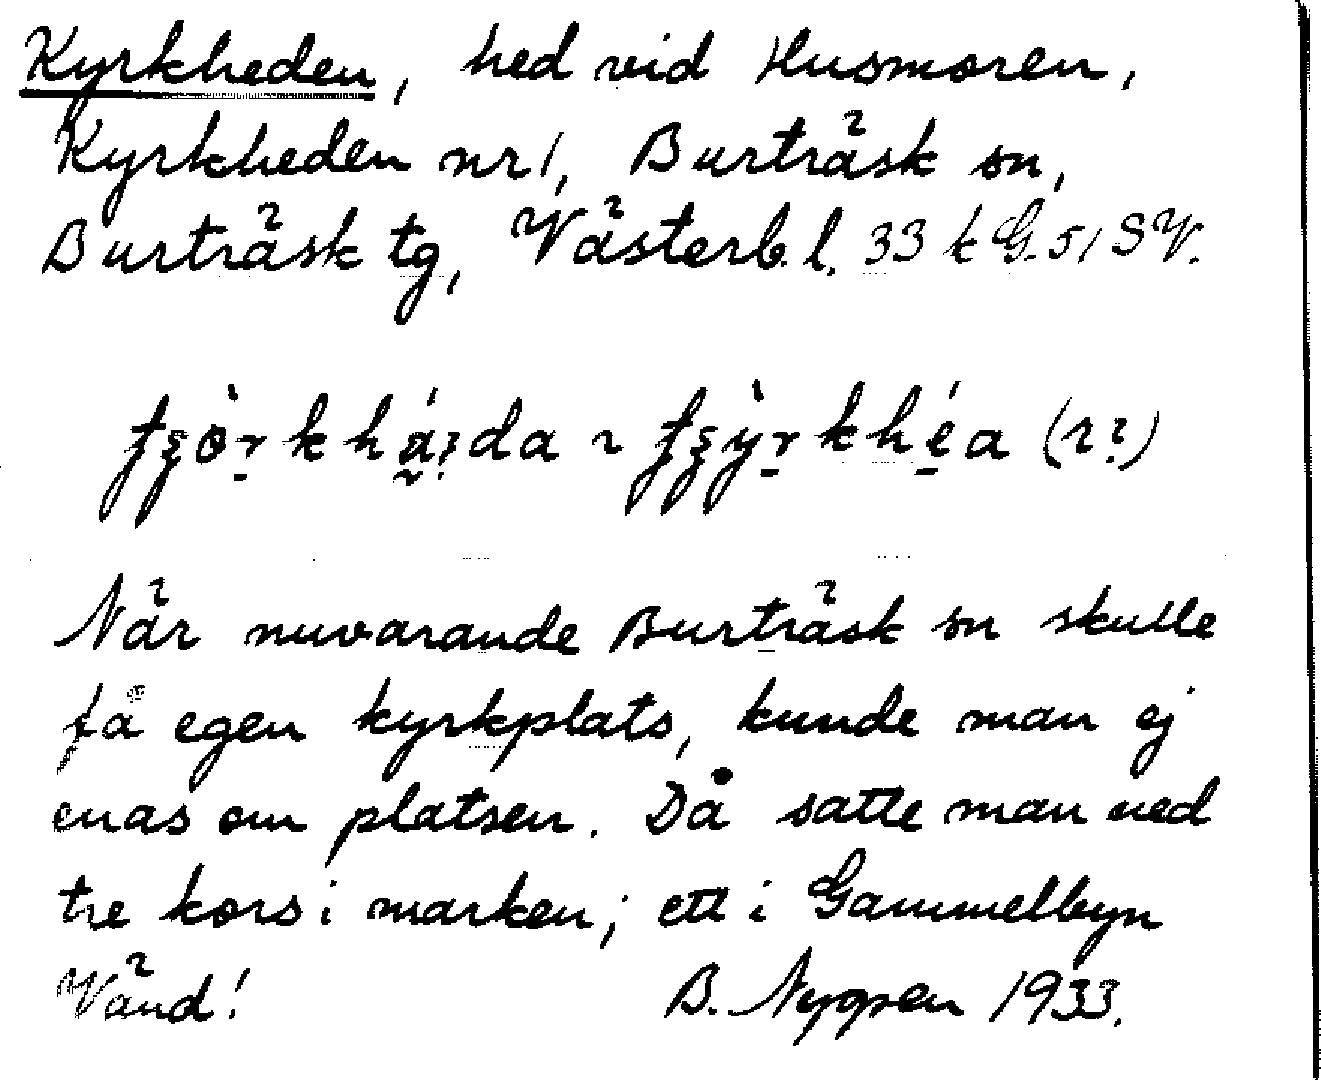 Kyrkheden, hed vid Husmoren,
Kyrkheden nr 1, Burträsk sn,
Burträsk tg, Västerb. l. 33 k G. 51 SV.
När nuvarande Burträsk sn skulle
få egen kyrkplats, kunde man ej
enas om platsen. Då satte man ned
tre kors i marken; ett i Gammelbyn
Vänd! B. Nygren 1933.